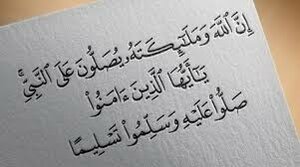 إِنَّ ٱللَّهَ وَمَلَٰٓئِكَتَهُۥ يُصَلُّونَ عَلَى ٱلنَّبِيِّ
يَٰٓأَيُّهَا ٱلَّذِينَ ءَامَنُوا۟
صَلُّوا۟ عَلَيْهِ وَسَلِّمُوا۟ تَسْلِيمًا